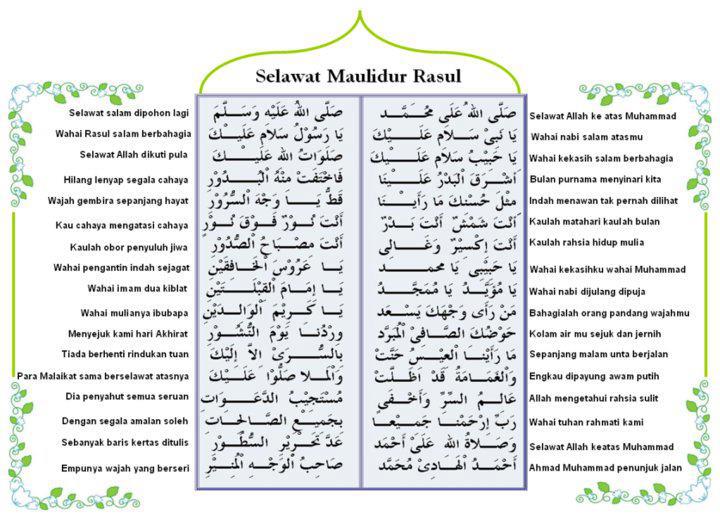 Selawat Maulidur Rasul
Selawat salam dipohon lagi
Wahai Rasul salam berbahagia
Selawat Allah dikuti pula
Hilang lenyap segala cahaya
Wajah gembira sepanjang hayat
Kau cahaya mengatasi cahaya
Kaulah obor penyuluh jiwa
Wahai pengantin indah sejagat
Wahai imam dua kiblat
Wahai mulianya ibubapa
Menyejuk kami hari Akhirat
Tiada berhenti rindukan tuan
Para Malaikat sama berselawat atasnya
Dia penyahut semua seruan
Dengan segala amalan soleh
Sebanyak baris kertas ditulis
Empunya wajah yang berseri
صَلَّى اللهُ عَلَيْهِ وَسَلَّمَ
يَا رَسُوْلُ سَلَامِ عَلَيْكَ
صَلَوَاتُ الله عَلَيْكَ
فَاخْتَفَتْ مِنْهُ الْبُدُوْرِ
قَطُّ يَا وَجْهَ السُّرُوْرِ
أَنْتَ نُوْرٌ فَوْقَ نُوْرٍ
أَنْتَ مِصْبَاحُ الصُّدُوْرِ
يَا عَرُوْسَ الْخَافِقَيْنِ
يَا إِمَامَ الْقِبْلَتَيْنِ
يَا كَرِيْمَ الْوَالِدَيْنِ
وِرْدُنَا يَوْمَ النُّشُوْرِ
بِالسُّرَىْ إِلاَّ إِلَيْكَ
وَالْمَلا صَلُّوْا عَلَيْكَ
مُسْتَجِيْبُ الدَّعَوَاتِ
بِجَمِيْعِ الصَّالِحَاتِ
عَدَّ تَحْرِيْرِ السُّطُوْرِ
صَاحِبُ الْوَجْهِ الْمُنِيْرِ
صَلَّى اللهُ عَلَى مُحَمَّد
يَا نَبِيْ سَلَامِ عَلَيْكَ
يَا حَبِيْبُ سَلَامِ عَلَيْكَ
أَشْرَقَ الْبَدْرُ عَلَيْنَا
مِثْلَ حُسْنِكَ مَا رَأَيْنَا
أَنْتَ شَمْسٌ أَنْتَ بَدْرٌ
أَنْتَ إِكْسِيْرٌ وَغَالِي
يَا حَبِيْبِى يَا مُحَمد
يَا مُؤَيَّدُ يَا مُمَجَّدُ
مَنْ رَأَى وَجْهَكَ يَسْعَد
حَوْضُكَ الصَّافِى الْمُبَرَّد
مَا رَأَيْنَا الْعِيْسَ حَنَّتْ
وَالْغَمَامَةُ قَدْ اظَلَّتْ
عَالِمُ السِّرِّ وَأَخْفَى
رَبِّ إِرْحَمْنَا جَمِيْعًا
وَصَلاَةُ الله عَلَىْ أَحْمَد
أَحْمَدُ الْهَادِىْ مُحَمَّد
Selawat Allah ke atas Muhammad
Wahai nabi salam atasmu
Wahai kekasih salam berbahagia
Bulan purnama menyinari kita
Indah menawan tak pernah dilihat
Kaulah matahari kaulah bulan
Kaulah rahsia hidup mulia
Wahai kekasihku wahai Muhammad
Wahai nabi dijulang dipuja
Bahagialah orang pandang wajahmu
Kolam air mu sejuk dan jernih
Sepanjang malam unta berjalan
Engkau dipayung awam putih
Allah mengetahui rahsia sulit
Wahai tuhan rahmati kami
Selawat Allah keatas Muhammad
Ahmad Muhammad penunjuk jalan